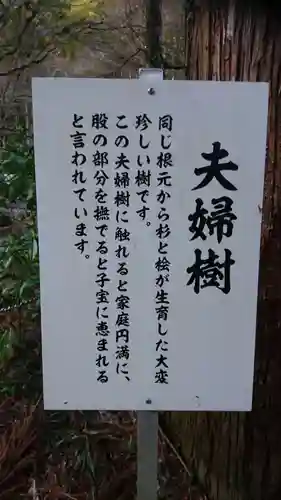 夫婦樹
同じ根元から杉と桧が生育した大変
珍しい樹です。
この夫婦樹に触れると家庭円満に、
股の部分を撫でると子宝に恵まれる
と言われています。